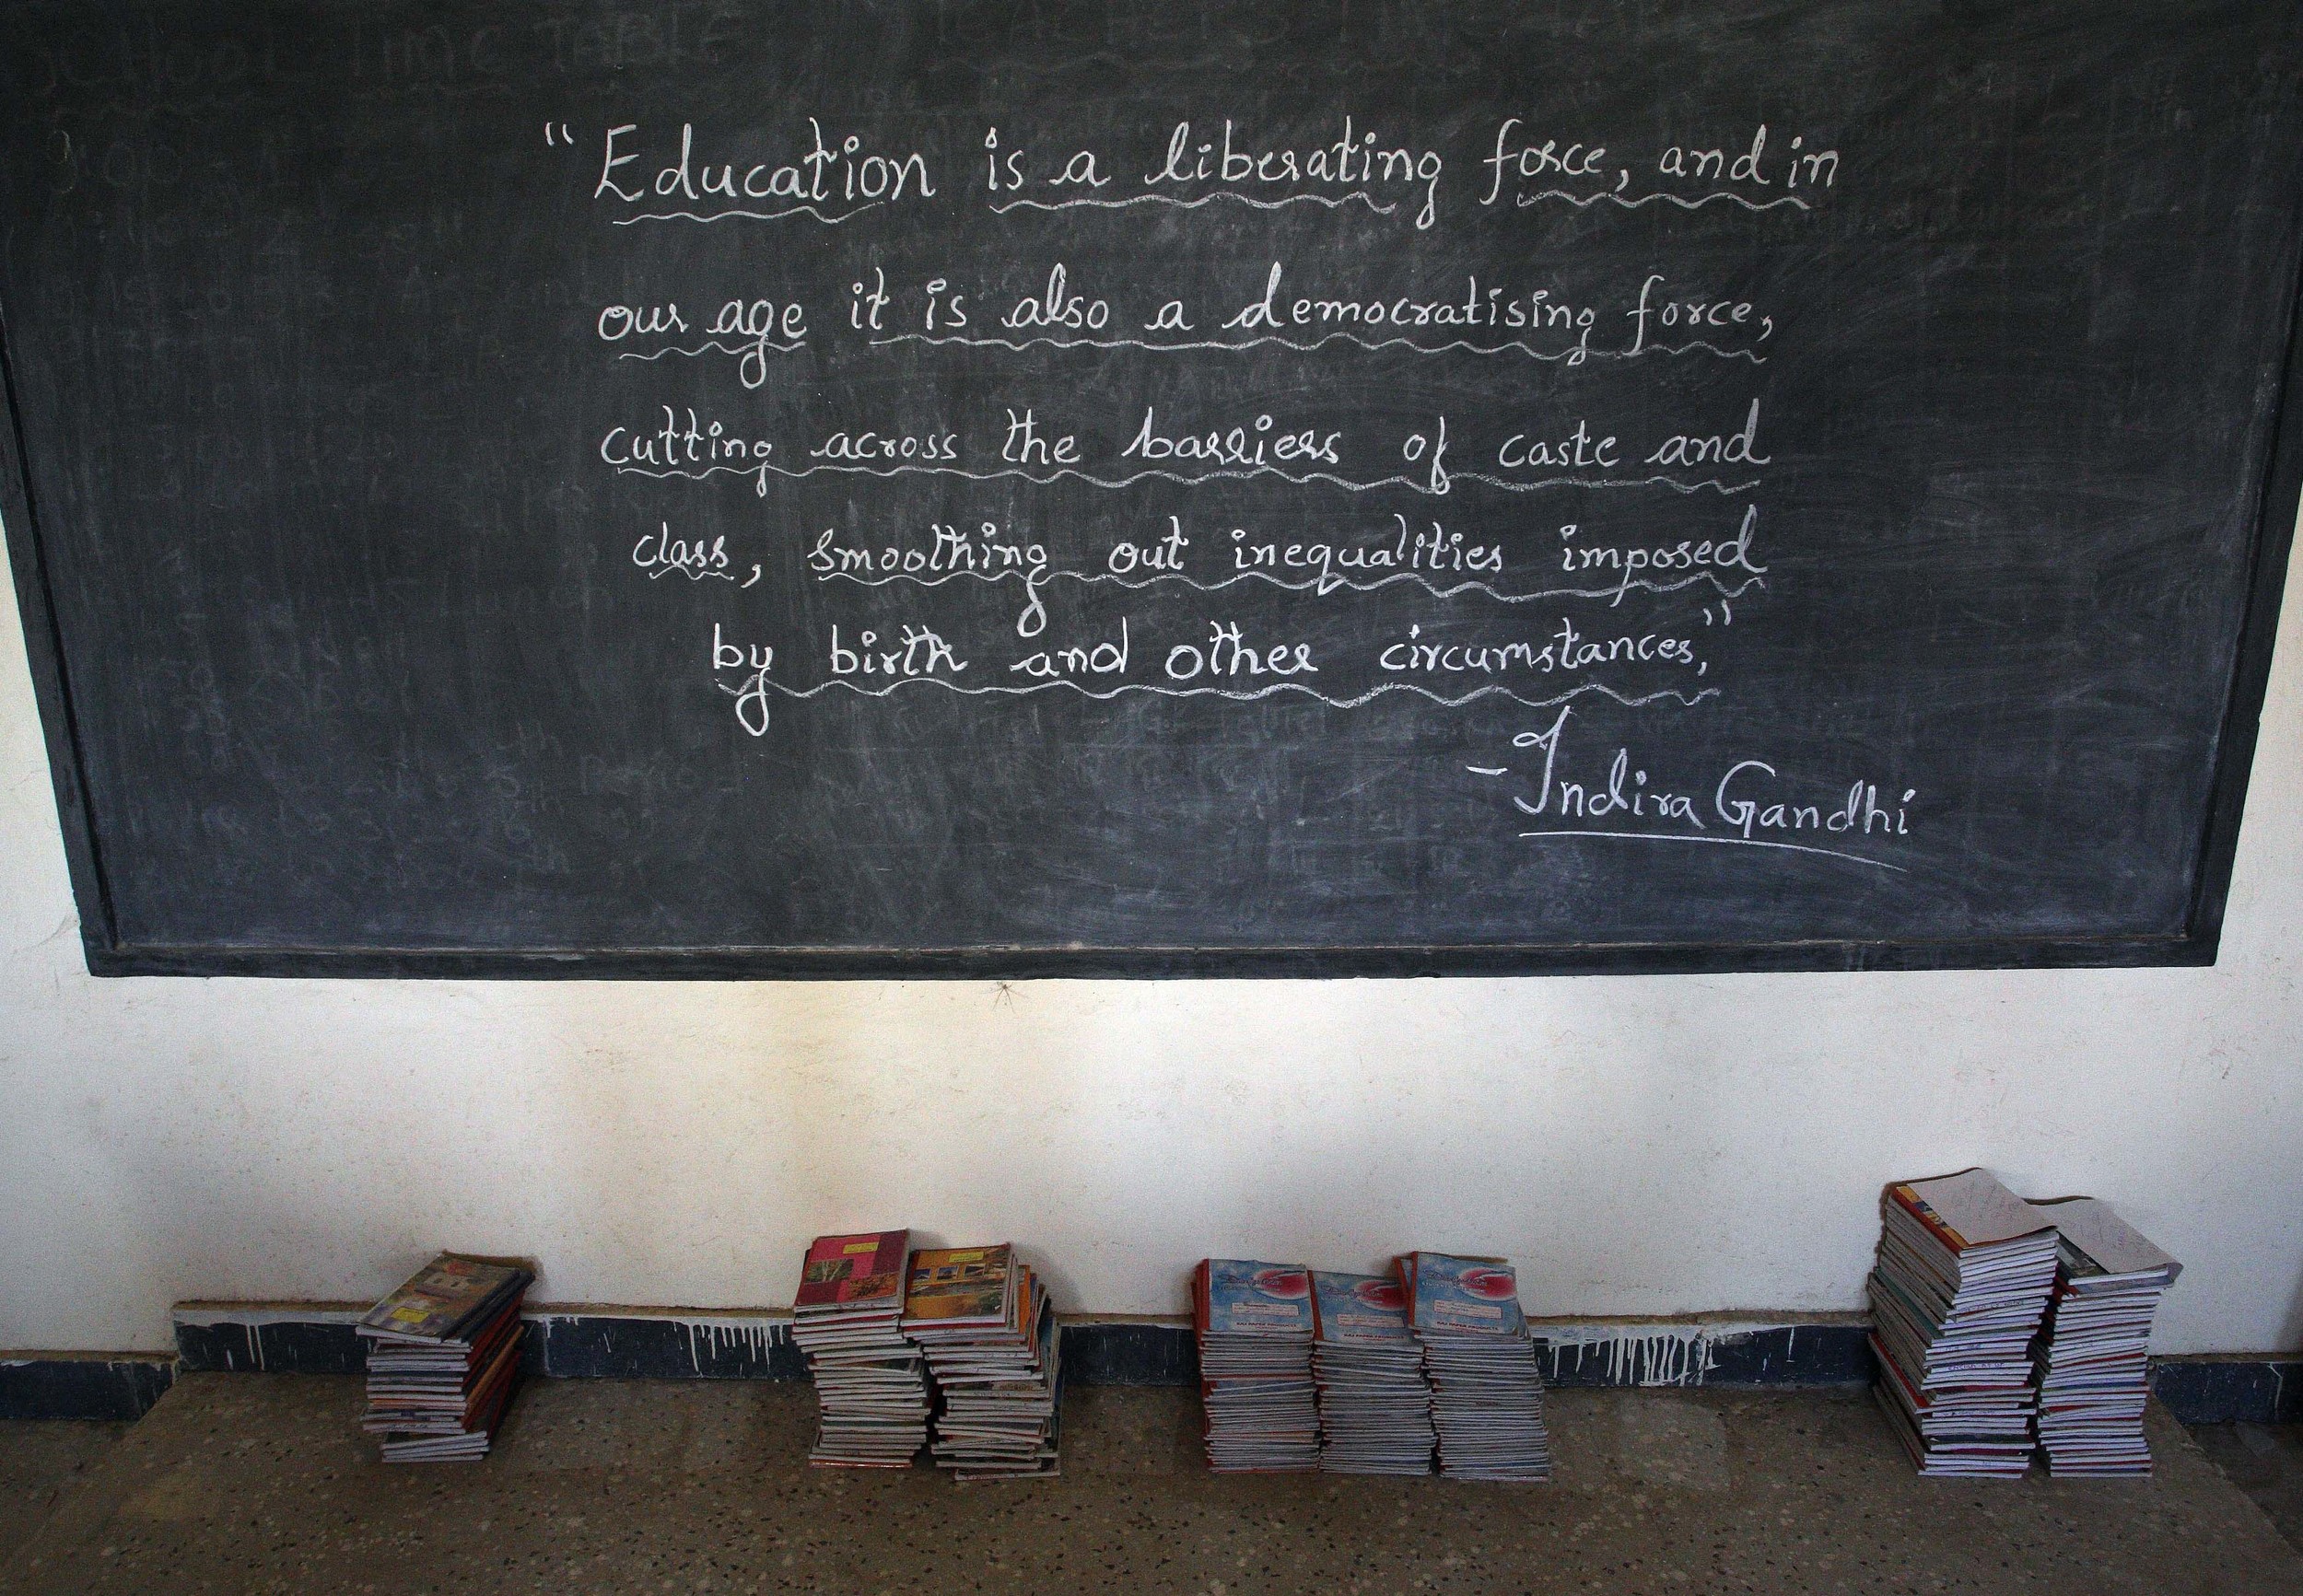 SCHOOL TIME TABLE
"Education is a liberating force, and in
our age it is also a democratising force,
cutting across the barriers of caste and
class, smoothing out inequalities imposed
by birth and other circumstances,"
-Indira Gandhi